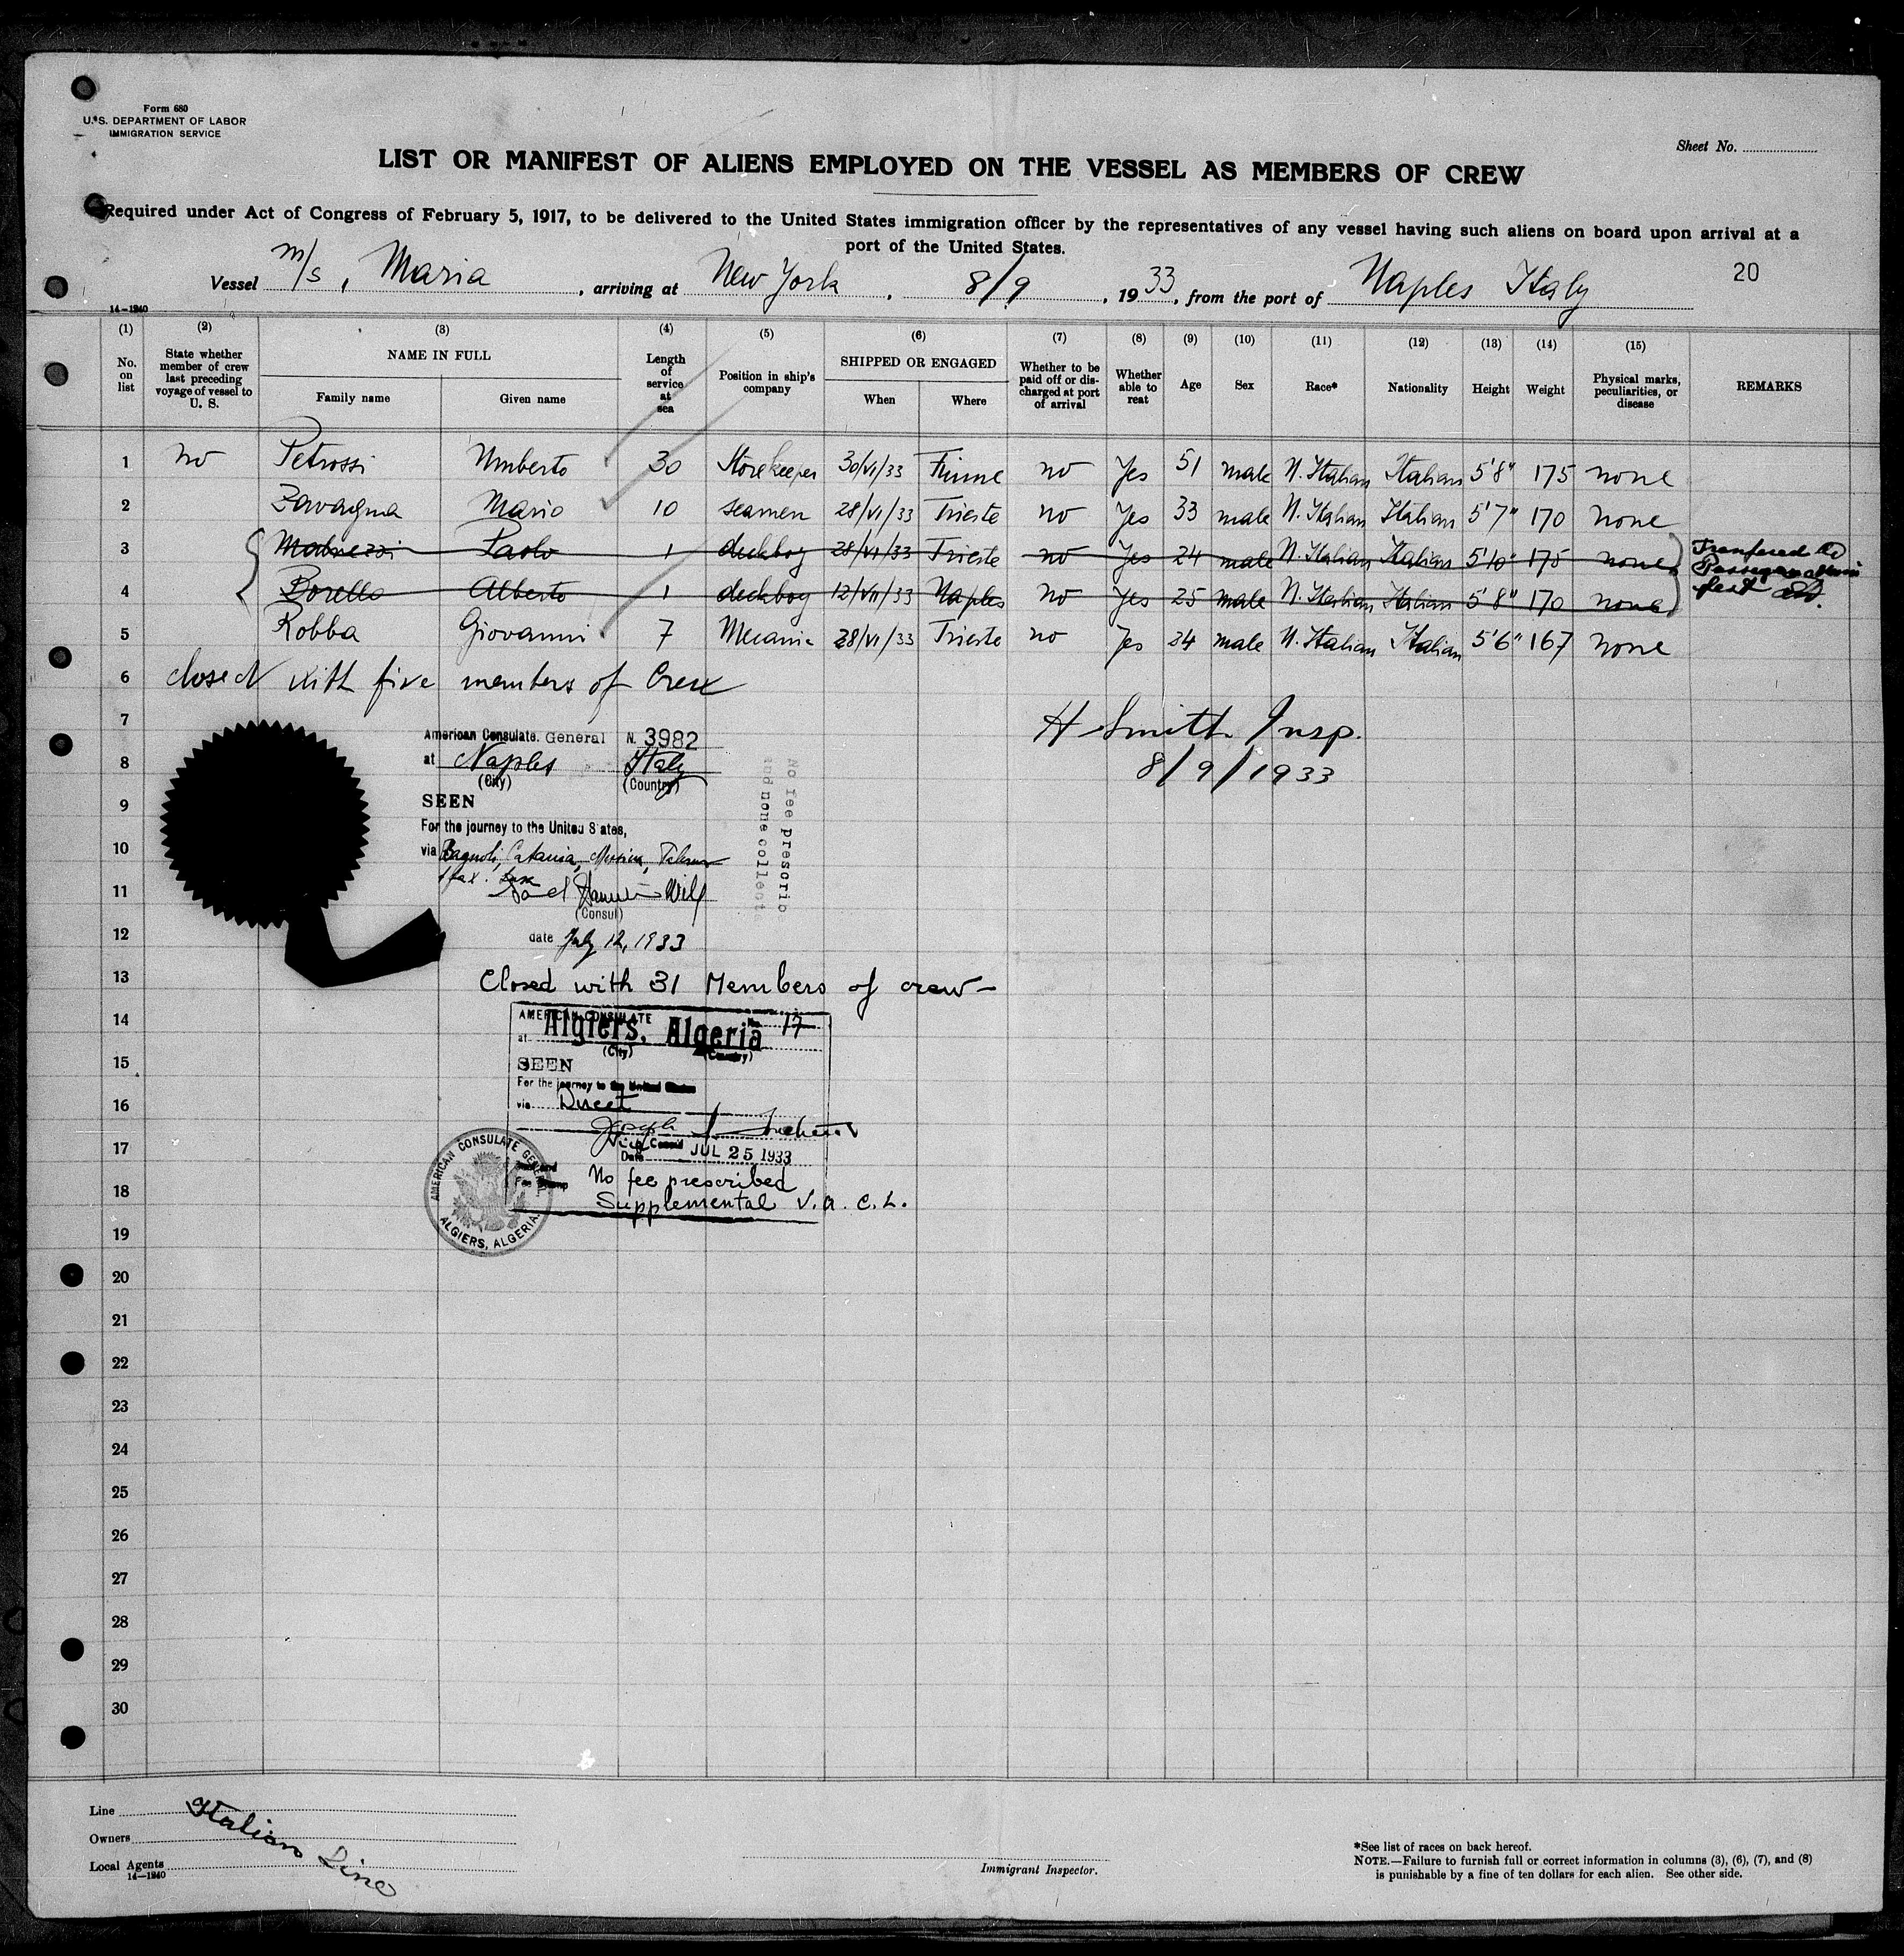 Form 680
U. S. DEPARTMENT OF LABOR
IMMIGRATION SERVICE
Sheet No.
LIST OR MANIFEST OF ALIENS EMPLOYED ON THE VESSEL AS MEMBERS OF CREW
Required under Act of Congress of February 5, 1917, to be delivered to the United States immigration officer by the representatives of any vessel having such aliens on board upon arrival at a
port of the United States.
Vessel m/s, Maria, arriving at New York, 8/9, 1933, from the port of Naples Italy
20
14-1240
(1) (2) (3) (4) (5) (6) (7) (8) (9) (10) (11) (12) (13) (14) (15)
No. on list
State whether member of crew last preceding voyage of vessel to U. S.
NAME IN FULL
Family name
Given name
Length of service at sea
Position in ship's company
SHIPPED OR ENGAGED
When
Where
Whether to be paid off or discharged at port of arrival
Whether able to read
Age
Sex
Race*
Nationality
Height
Weight
Physical marks, peculiarities, or disease
REMARKS
1 no Petrossi Umberto 30 Storekeeper 30/VI/33 Fiume no Yes 51 male N. Italian Italian 5'8" 175 none
2 Zavagna Mario 10 seamen 28/VI/33 Trieste no Yes 33 male N. Italian Italian 5'7" 170 none
3 Paolo 1 deckboy 28/VI/33 Trieste no Yes 24 male N. Italian Italian 5'10" 175 none
4 Borello Alberto 1 deckboy 12/VII/33 Naples no Yes 25 male N. Italian Italian 5'8" 170 none
Tranfered to
Passenger mani
fest
5 Robba Giovanni 7 Mecanic 28/VI/33 Trieste no Yes 24 male N. Italian Italian 5'6" 167 none
6 closed with five members of Crew
7
H Smith Insp.
8/9/1933
American Consulate. General N. 3982
at Naples Italy
(City) (Country)
8
SEEN
9
For the journey to the United States,
via Bagnoli, Catania, Messina,
10
11
(Consul)
No fee prescrib
and none collect
12
date July 12, 1933
13
Closed with 31 Members of crew-
14
AMERICAN CONSULATE
No. 17
at Algiers, Algeria
(City) (Country)
15
SEEN
For the journey to the United States
16
via Direct
Joseph
17
Vice Consul
Date JUL 25 1933
Fee Stamp
No fee prescribed
18
Supplemental V.a.C.L.
AMERICAN CONSULATE GENERAL
ALGIERS, ALGERIA.
19
20
21
22
23
24
25
26
27
28
29
30
Line
Owners
Local Agents
14-1240
Italian Line
Immigrant Inspector.
*See list of races on back hereof.
NOTE.—Failure to furnish full or correct information in columns (3), (6), (7), and (8)
is punishable by a fine of ten dollars for each alien. See other side.